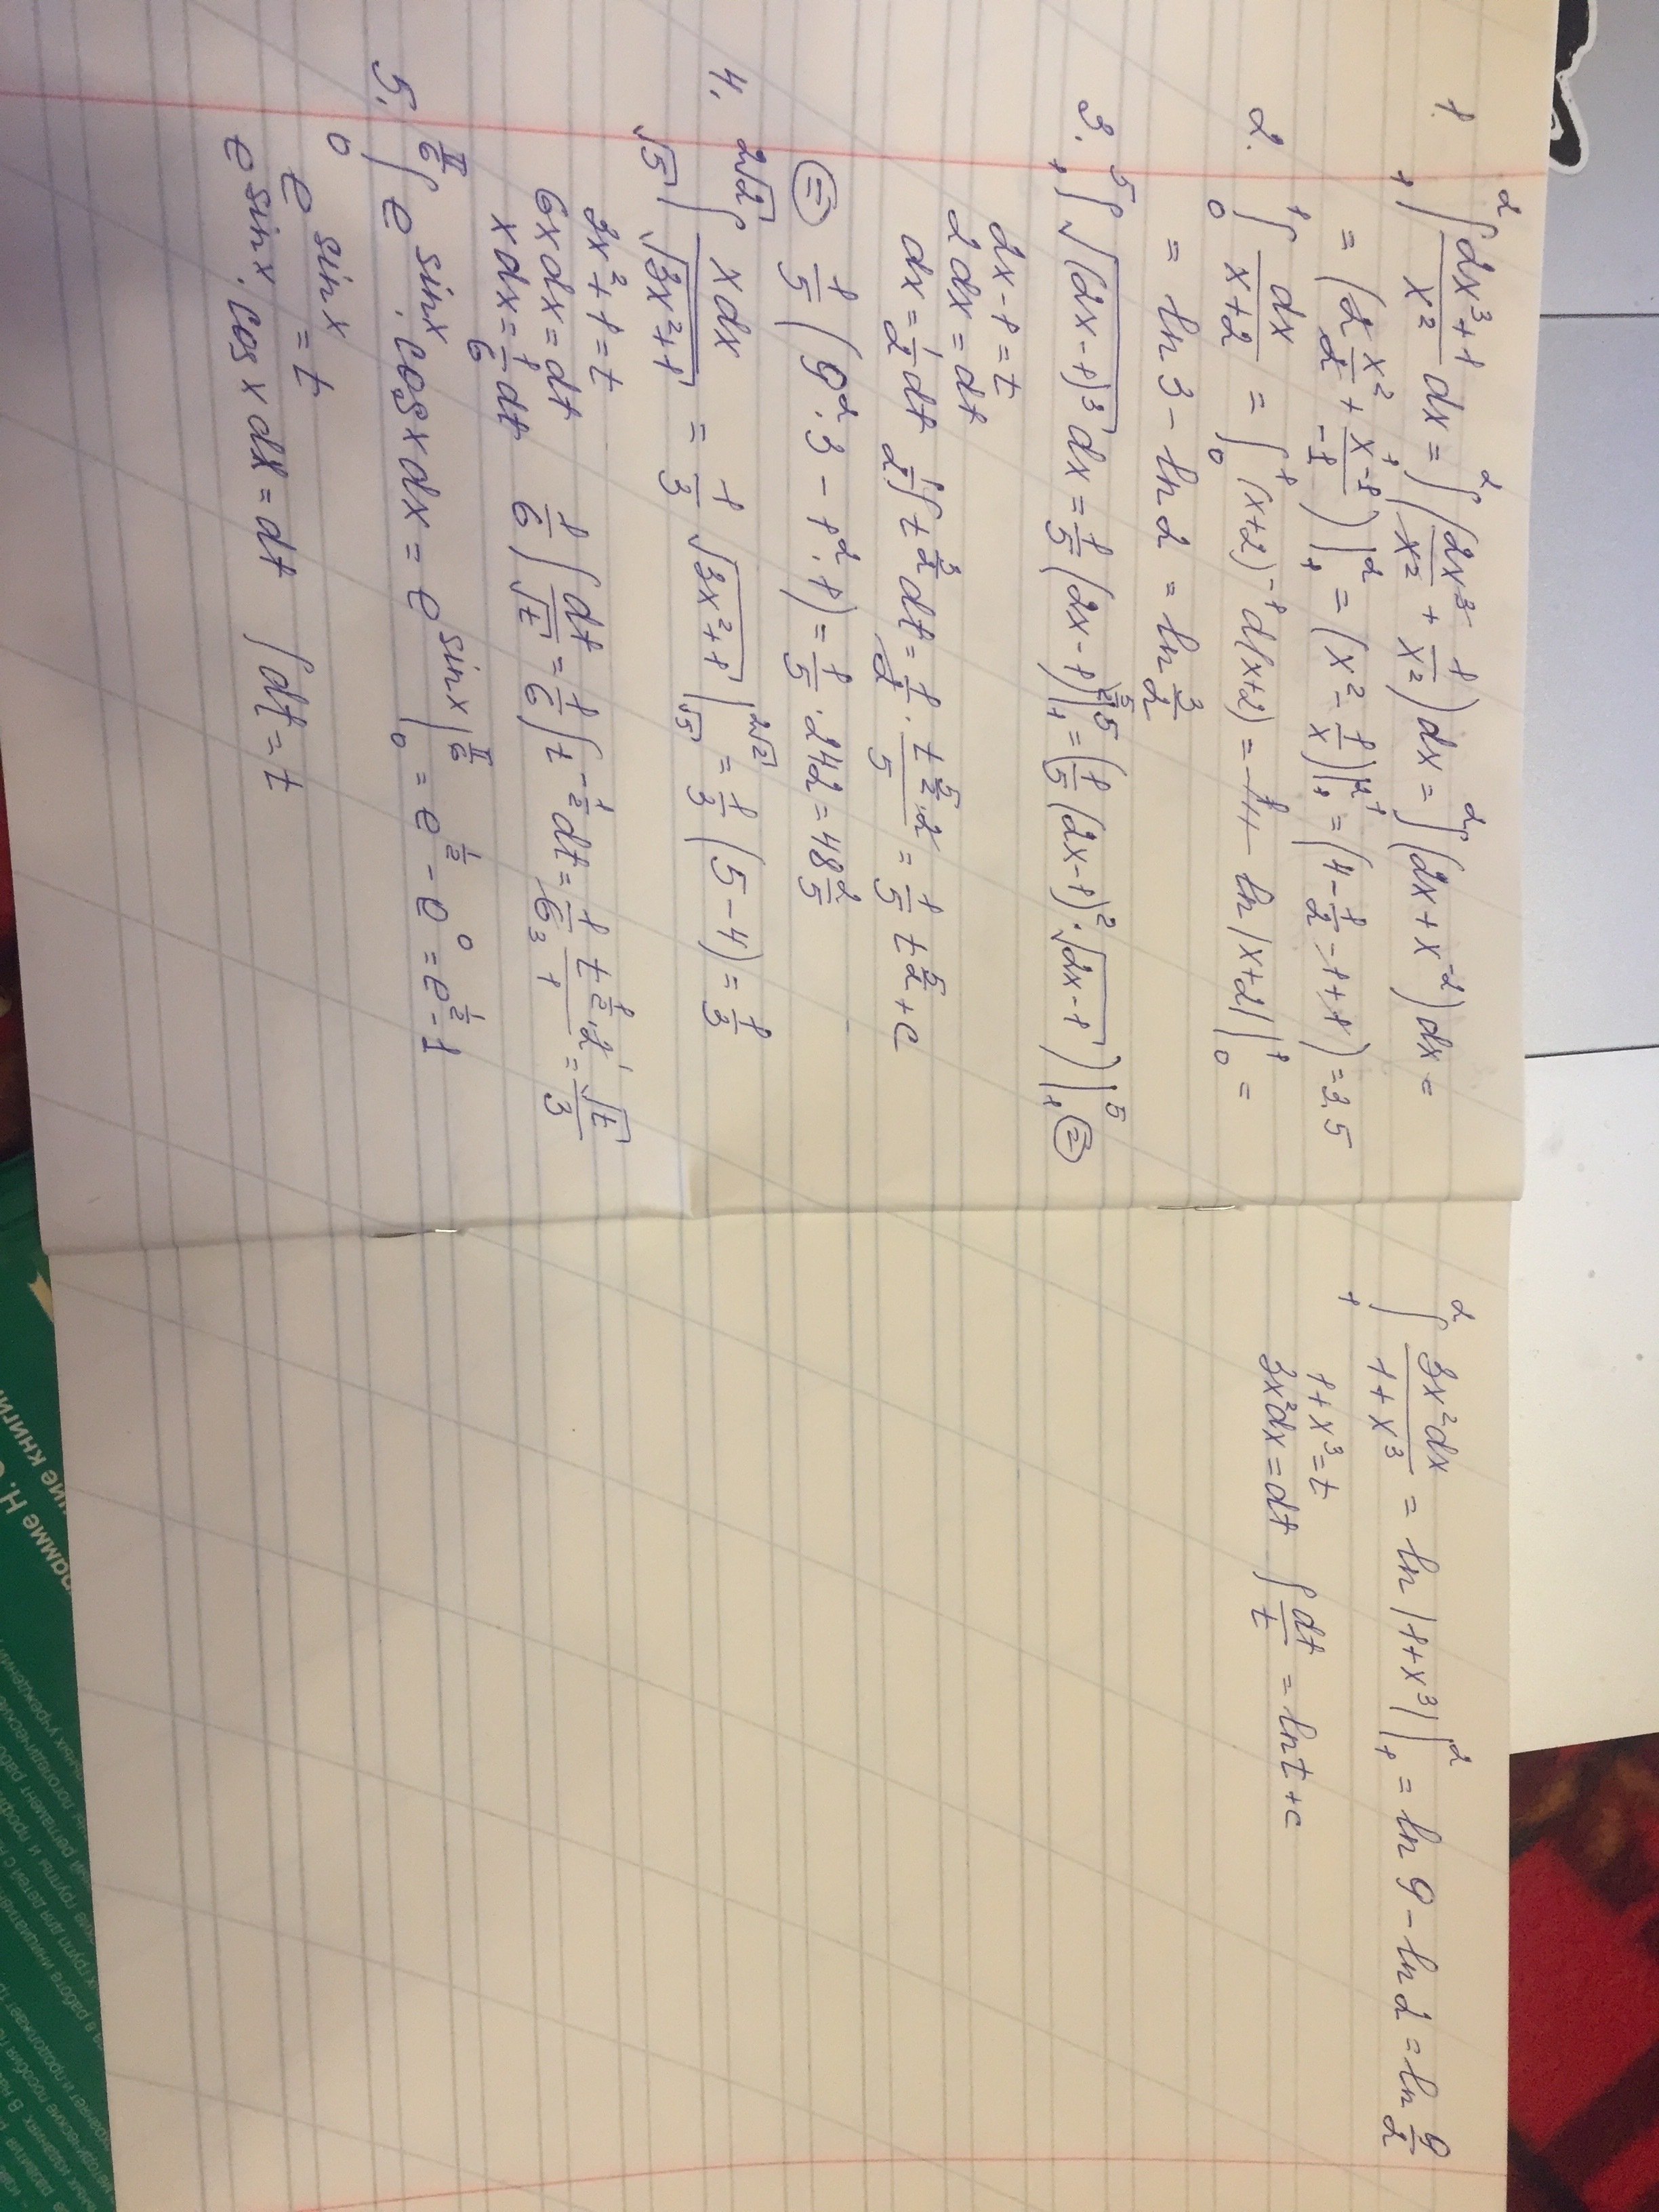 1. ∫₁² (2x³+1)/x² dx = ∫₁² (2x³/x² + 1/x²) dx = ∫₁² (2x + x⁻²) dx =
= (2 x²/2 + x⁻¹/-1) |₁² = (x² - 1/x) |₁² = (4 - 1/2 - 1 + 1) = 3,5
2. ∫₀¹ dx/(x+2) = ∫₀¹ (x+2)⁻¹ d(x+2) = ln |x+2| |₀¹ =
= ln 3 - ln 2 = ln 3/2
3. ∫₁⁵ √(2x-1)³ dx = 1/5 (2x-1)^(5/2) |₁⁵ = (1/5 (2x-1)² · √(2x-1)) |₁⁵ ⊜
2x-1 = t
2 dx = dt
dx = 1/2 dt 1/2 ∫ t^(3/2) dt = 1/2 · (t^(5/2) · 2)/5 = 1/5 t^(5/2) + c
⊜ 1/5 (9² · 3 - 1² · 1) = 1/5 · 242 = 48 2/5
4. ∫_√5^2√2 x dx/√(3x²+1) = 1/3 √(3x²+1) |_√5^2√2 = 1/3 (5-4) = 1/3
3x²+1 = t
6x dx = dt
x dx = 1/6 dt 1/6 ∫ dt/√t = 1/6 ∫ t^(-1/2) dt = 1/6 · (t^(1/2) · 2)/1 = √t/3
5. ∫₀^(π/6) e^(sin x) · cos x dx = e^(sin x) |₀^(π/6) = e^(1/2) - e⁰ = e^(1/2) - 1
e^(sin x) = t
e^(sin x) · cos x dx = dt ∫ dt = t
∫₁² 3x² dx/(1+x³) = ln |1+x³| |₁² = ln 9 - ln 2 = ln 9/2
1+x³ = t
3x² dx = dt ∫ dt/t = ln t + c